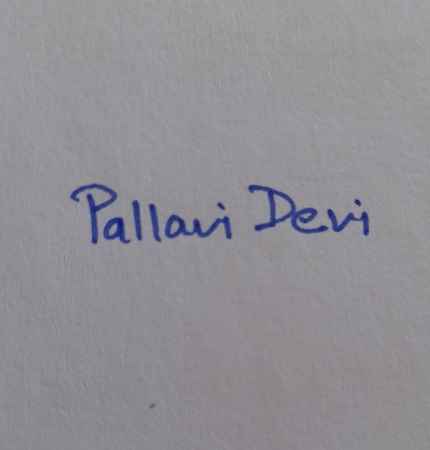 Pallavi Devi